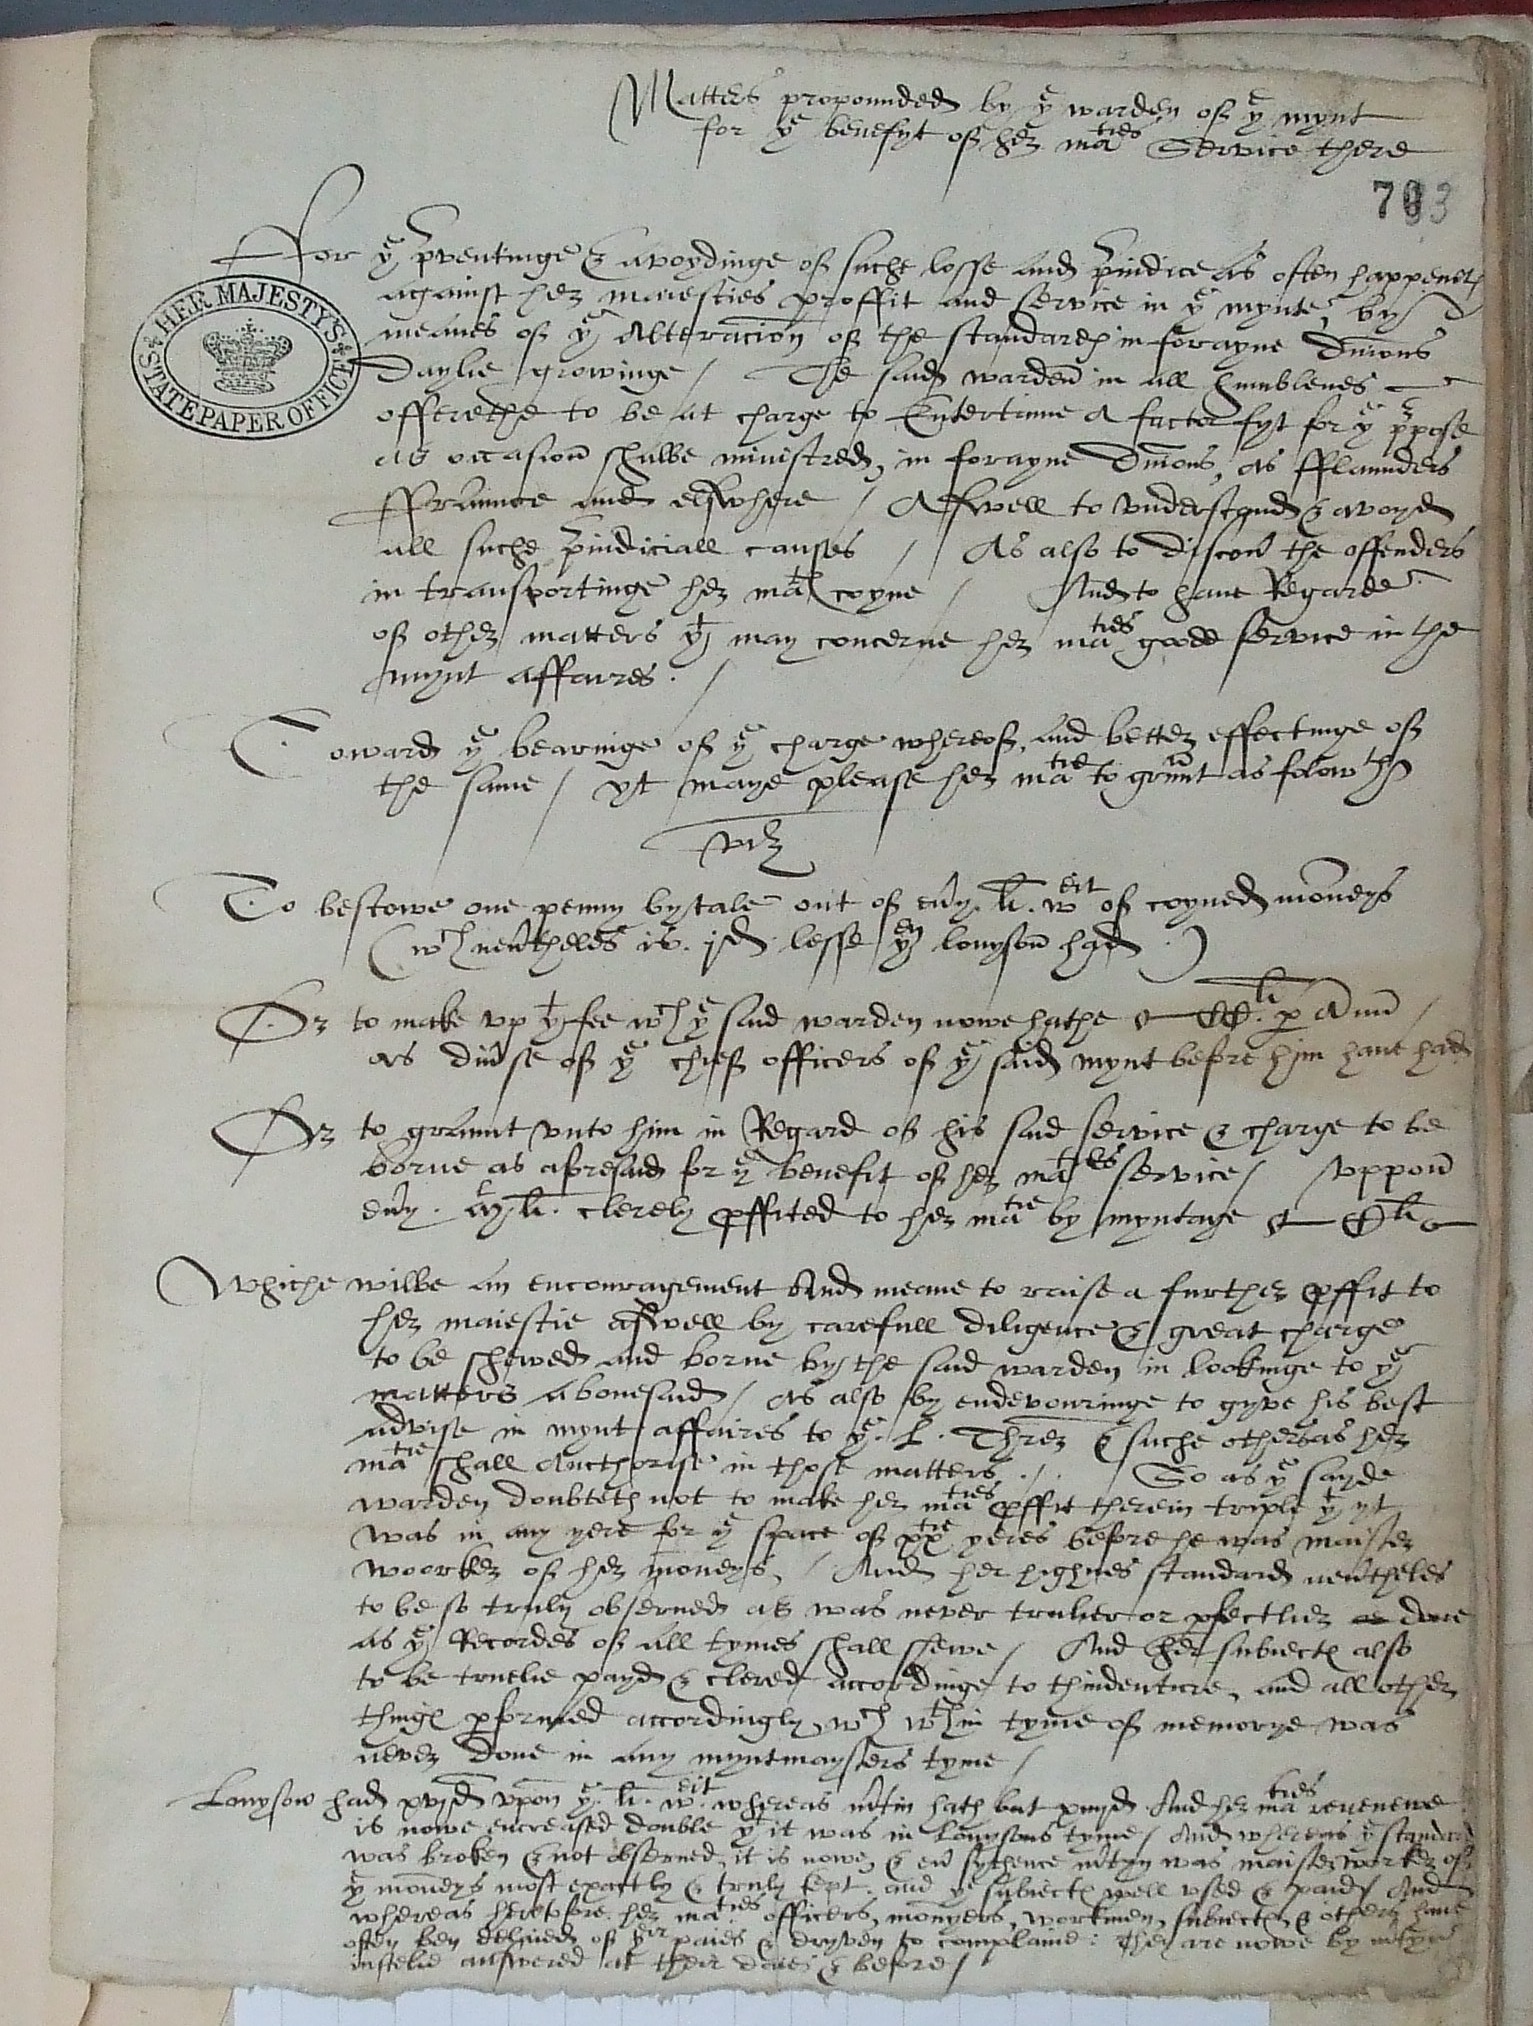 Matters propounded by yͤ warden of yͤ mynt
for yͤ benefyt of her maᵗⁱᵉˢ Service there
793
For yͤ pventinge & avoydinge of suche losse and piudice as often happeneth
against her maiesties proffit and service in yͤ mynte, by
meanes of yͤ Alteracion of the standard in forayne Dmions
Daylie growinge / The said warden in all humblenes
offerethe to be at charge to Entertinne A factor fyt for yͤ ppose
as occasion shalbe ministred, in forayne Dmions, as fflaunders
ffraunce and elswhere / Aswell to understand & avoyd
all suche piudiciall causes / As also to discov the offenders
in transportinge her maᵗ coyne / And to have Regarde
of other matters yᵗ may concerne her maᵗⁱᵉˢ good service in the
mynt affaires . /
Toward yͤ bearinge of yͤ charge whereof, and better effectinge of
the same / yt maye please her maᵗⁱᵉ to grunt as folowth
viz
To bestowe one penny by tale out of evy . li . wᵉⁱᵗ of coyned moneys
(wch nevtheles is . jd . lesse yᵉⁿ Lonyson had .)
Or to make up yᵗ fee wch yͤ said warden nowe hathe CCˡⁱ p Ann /
as divse of yͤ chief officers of yͤ said mynt before him have had
Or to graunt unto him in Regard of his said service & charge to be
borne as aforesaid for yͤ benefit of her maᵗⁱᵉˢ service / uppon
evy . li . clerely pffited to her maᵗⁱᵉ by myntage Cˡⁱ
Whiche wilbe an encouragement And meane to raise a further pffit to
her maiestie aswell by carefull diligence & great charge
to be shewed and borne by the said warden in lookinge to yͤ
matters abovesaid / as also by endevouringe to gyve his best
advise in mynt affaires to yͤ . L . Threr & suche others as her
maᵗⁱᵉ shall Aucthorise in those matters . / . So as yͤ sayde
warden doubteth not to make her maᵗⁱᵉˢ pffit therein triple yᵗ yt
was in any yere for yͤ space of xxᵗⁱᵉ yeres before he was maister
woorker of her moneys, / And her highnes standard nevtheles
to be so truly observed as was never trulier or pfectlier done
as yͤ Recordes of all tymes shall shewe / And her subiects also
to be truelie payd & clered accordinge to thindenture, and all other
things pformed accordingly, wch wthin tyme of memorye was
never done in any myntmaysters tyme /
Lonyson had xvjd upon yͤ . li . wᵉⁱᵗ . whereas mtin hath but xiiijd And her maᵗⁱᵉˢ revenewe
is nowe encreased double yᵗ it was in Lonysons tyme / And whereas yͤ standard
was broken & not observed, it is nowe, & ev sythence mtyn was maister worker of
yͤ moneys most exactly & truly kept . and yͤ subiects well used & paid / And
whereas heretofore her maᵗⁱᵉˢ officers, monyers, workmen, subiects, & others have
often ben delaied of yeir paies & dryven to complaine : they are nowe by mtyn
iustelie answered at their daies & before /
HER MAJESTY'S
STATE PAPER OFFICE